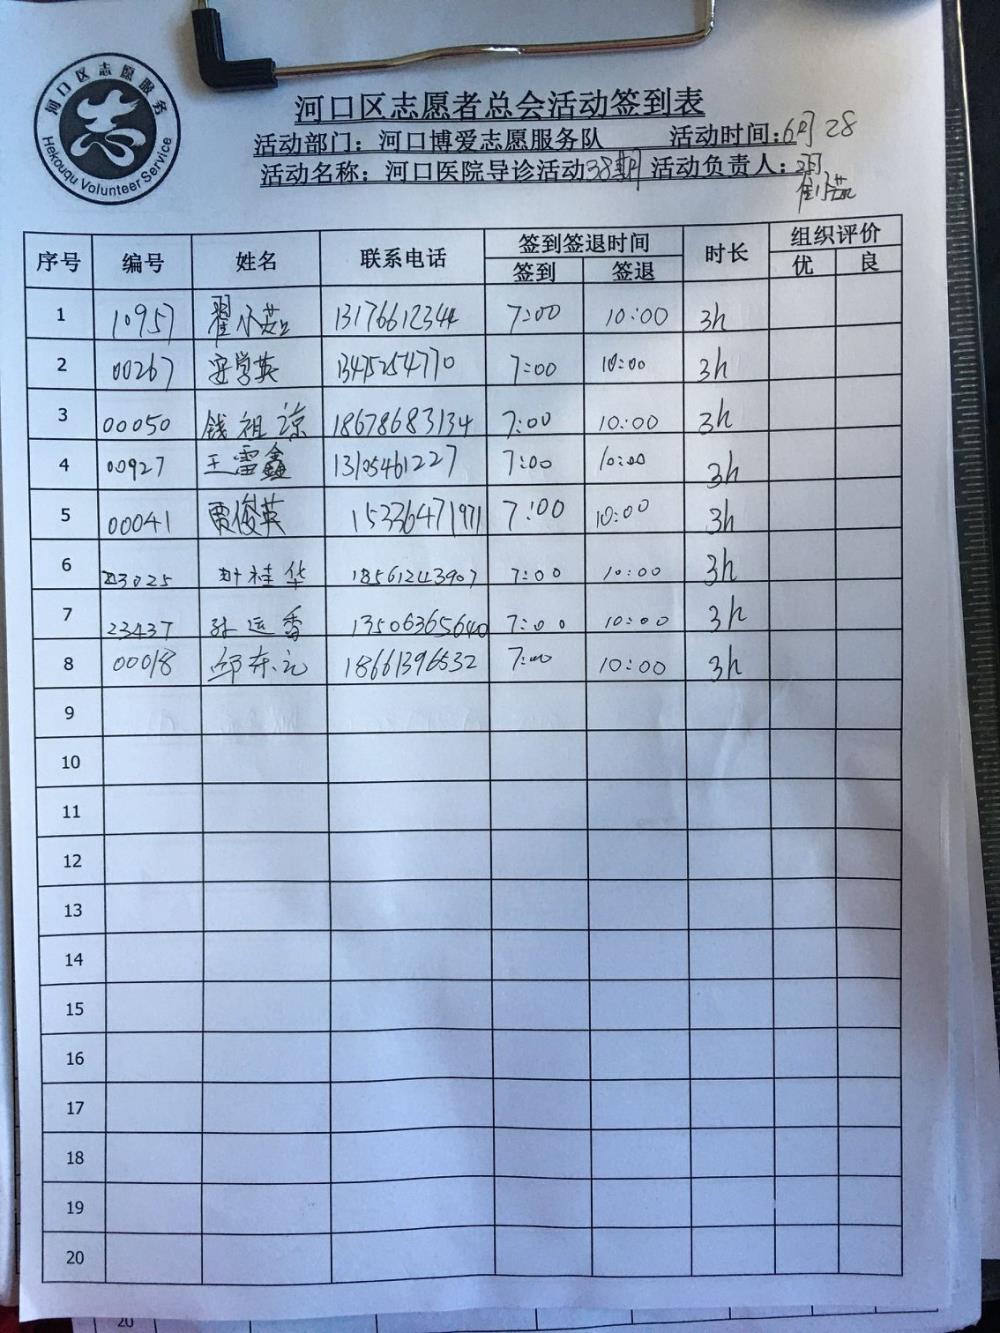 河口区志愿服务
Hekouqu Volunteer Service
河口区志愿者总会活动签到表
活动部门：河口博爱志愿服务队 活动时间：6月28
活动名称：河口医院导诊活动38期 活动负责人：
序号 编号 姓名 联系电话 签到签退时间 时长 组织评价
签到 签退 优 良
1 10957 翟小茹 13176612344 7:00 10:00 3h
2 00267 安学英 13475254770 7:00 10:00 3h
3 00050 钱祖凉 18678683134 7:00 10:00 3h
4 00927 王雷鑫 13105461227 7:00 10:00 3h
5 00041 贾俊英 15336471971 7:00 10:00 3h
6 23025 叶桂华 18561243907 7:00 10:00 3h
7 23437 孙运香 13506365640 7:00 10:00 3h
8 00018 邱东元 18661396532 7:00 10:00 3h
9
10
11
12
13
14
15
16
17
18
19
20
20